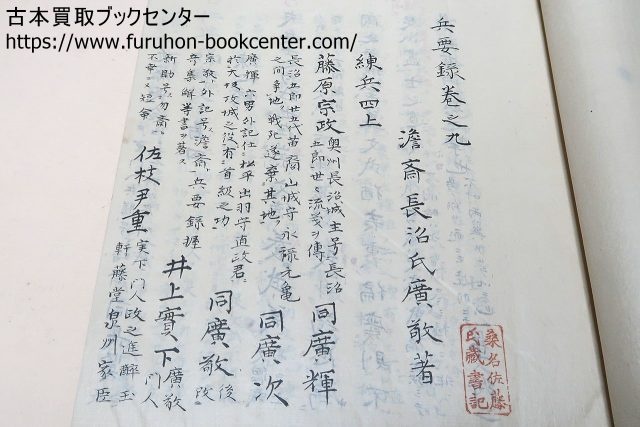 古本買取ブックセンター
https://www.furuhon-bookcenter.com/
兵要録巻之九
澹斎長沼氏廣敬著
練兵四上
藤原宗政
奥州長沼城主号長沼
五郎世々流芟ヲ傳
同廣輝
長沼五郎廿五代苗裔山城守永禄元亀
之间争地戦死遂棄其地
同廣次
廣輝六男外記仕松平出羽守直政君
於大坂攻城之役有首級之功
同廣敬
後改
宗敬外記号澹斎兵要録握
奇集解等書ヲ著ス
井上實下
廣敬
門人
新助号勿斎
不幸ニメ短命
佐枝尹重
実下門人政之進酔玉
軒藤堂泉州家臣
桑名佐藤
氏蔵書記